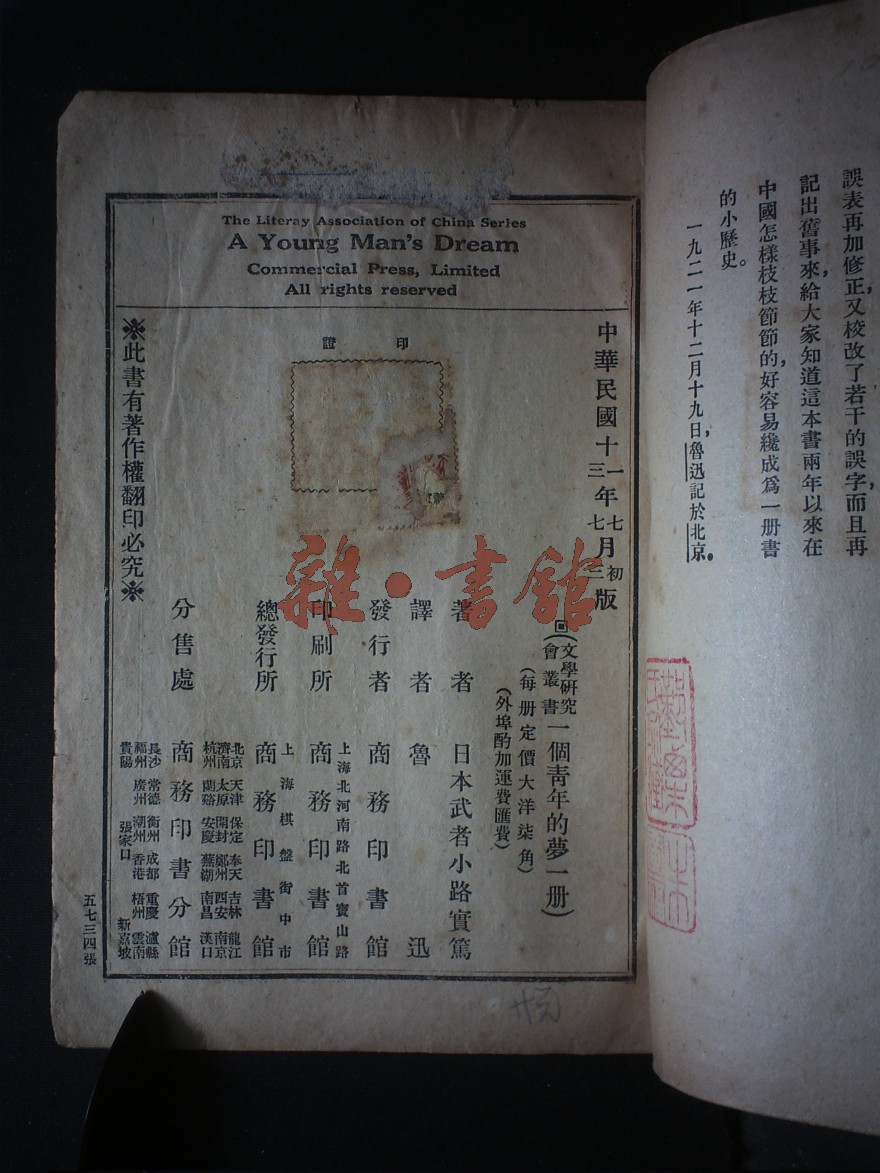 誤表再加修正，又校改了若干的誤字，而且再
記出舊事來，給大家知道這本書兩年以來在
中國怎樣枝枝節節的，好容易纔成爲一册書
的小歷史。
一九二一年十二月十九日，魯迅記於北京。
The Literay Association of China Series
A Young Man's Dream
Commercial Press, Limited
All rights reserved
中華民國十一年七月初版
三七三
回(文學研究會叢書一個青年的夢一册)
(每册定價大洋柒角)
(外埠酌加運費匯費)
著者 日本武者小路實篤
譯者 魯迅
發行者 商務印書館
上海北河南路北首寶山路
印刷所 商務印書館
上海棋盤街中市
總發行所 商務印書館
北京 天津 保定 奉天 吉林 龍江
濟南 太原 開封 鄭州 西安 南京
杭州 蘭谿 安慶 蕪湖 南昌 漢口
分售處 商務印書分館
長沙 常德 衡州 成都 重慶 瀘縣
福州 廣州 潮州 香港 梧州 雲南
貴陽 張家口 新嘉坡
印證
※此書有著作權翻印必究※
五七三四張
雜·書館